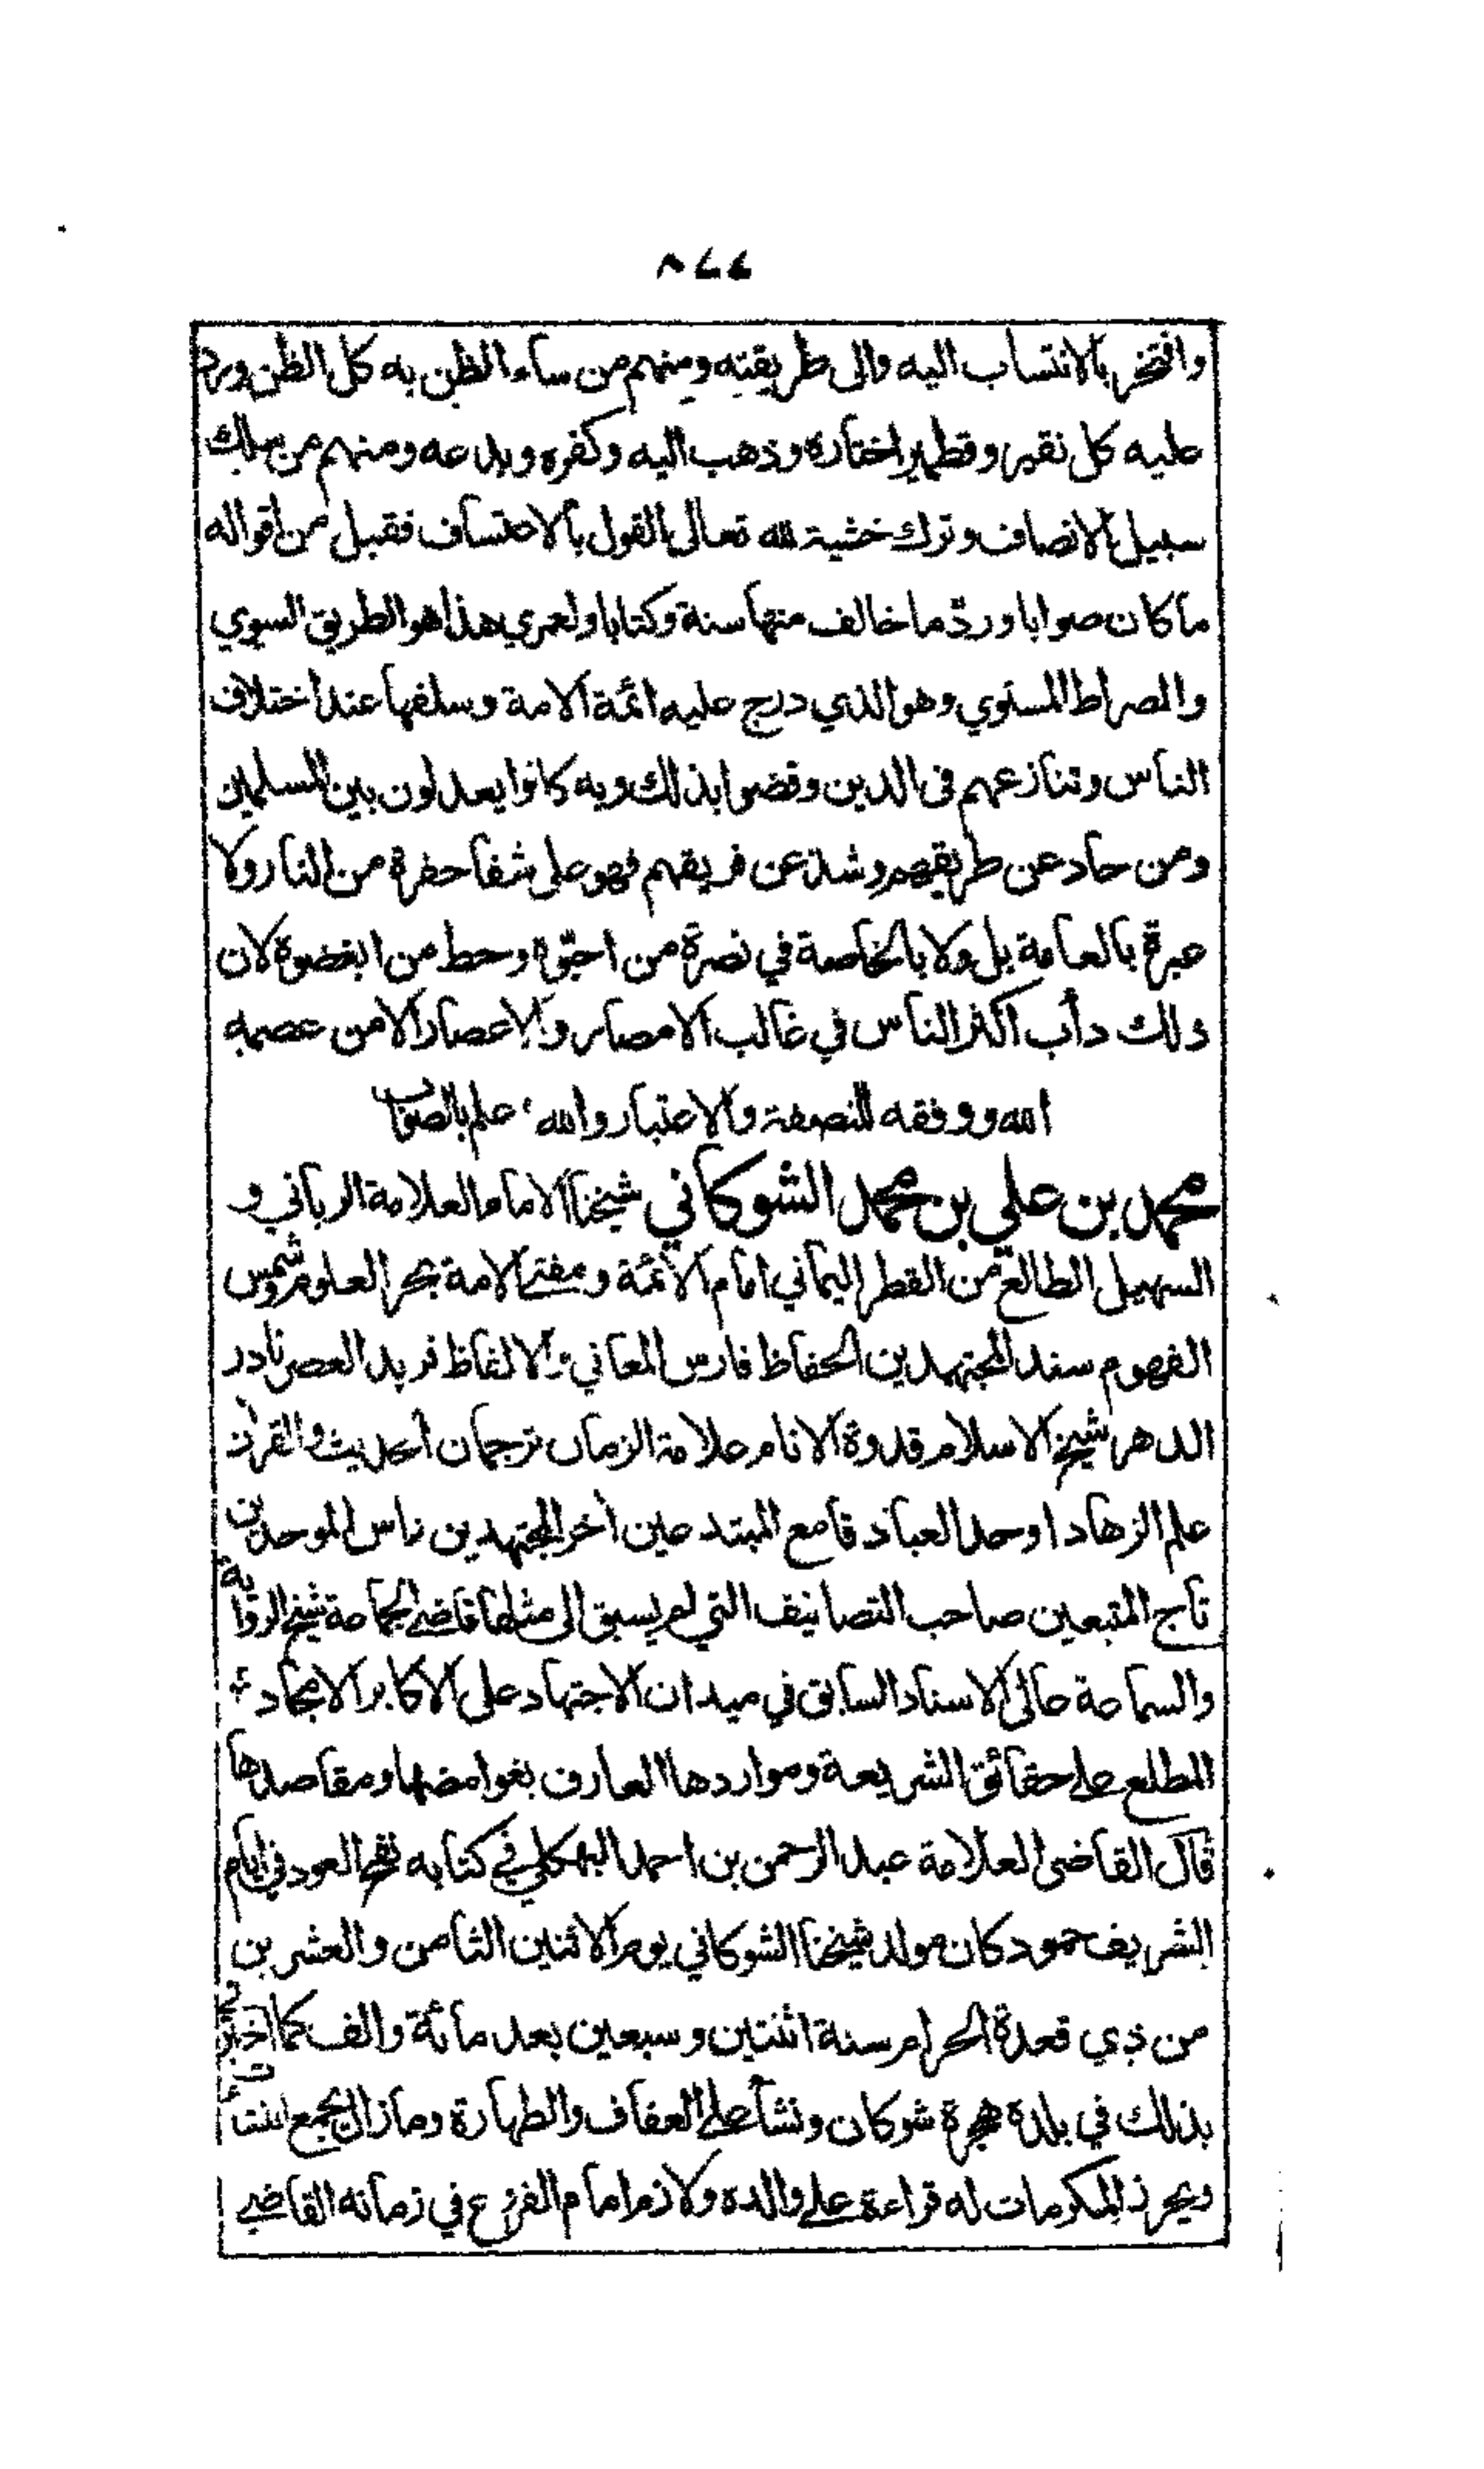 ٨٧٧
وافتخر بالانتساب اليه والى طريقته ومنهم من ساء الظن به كل الظن ورد
عليه كل نقير وقطمير اختاره وذهب اليه وكفره وبدعه ومنهم من سلك
سبيل الانصاف وترك خشية لله تعالى القول بالاعتساف فقبل من اقواله
ما كان صوابا وردّ ما خالف منها سنة وكتابا ولعمري هذا هو الطريق السوي
والصراط المستوي وهو الذي درج عليه ائمة الامة وسلفها عند اختلاف
الناس وتنازعهم في الدين وقضوا بذلك وبه كانوا يعدلون بين المسلمين
ومن حاد عن طريقهم وشذ عن فريقهم فهو على شفا حفرة من النار ولا
عبرة بالعامة بل ولا بالخاصة في نصرة من احبّوه وحط من ابغضوه لان
ذلك دأب اكثر الناس في غالب الامصار والاعصار الا من عصمه
الله ووفقه للنصفة والاعتبار والله اعلم بالصواب
محمد بن علي بن محمد الشوكاني شيخنا الامام العلامة الرباني و
السهيل الطالع من القطر اليماني امام الائمة ومفتي الامة بحر العلوم وشمس
الفهوم سند المجتهدين الحفاظ فارس المعاني والالفاظ فريد العصر نادر
الدهر شيخ الاسلام قدوة الانام علامة الزمان ترجمان الحديث والقرأن
علم الزهاد اوحد العباد قامع المبتدعين أخر المجتهدين راس الموحدين
تاج المتبعين صاحب التصانيف التي لم يسبق الى مثلها قاضي الجماعة شيخ الرواية
والسماعة عالي الاسناد السابق في ميدان الاجتهاد على الاكابر الامجاد
المطلع على حقائق الشريعة ومواردها العارف بغوامضها ومقاصدها
قال القاضي العلامة عبد الرحمن بن احمد البهكلي في كتابه نفح العود في ايام
الشريف حمود كان مولد شيخنا الشوكاني يوم الاثنين الثامن والعشرين
من ذي قعدة الحرام سنة اثنتين وسبعين بعد مائة والف كما اخبرني
بذلك في بلده هجرة شوكان ونشأ على العفاف والطهارة ومازال يجمع
ويحرز المكرمات له قراءة على والده ولازم امام الفروع في زمانه القاضي